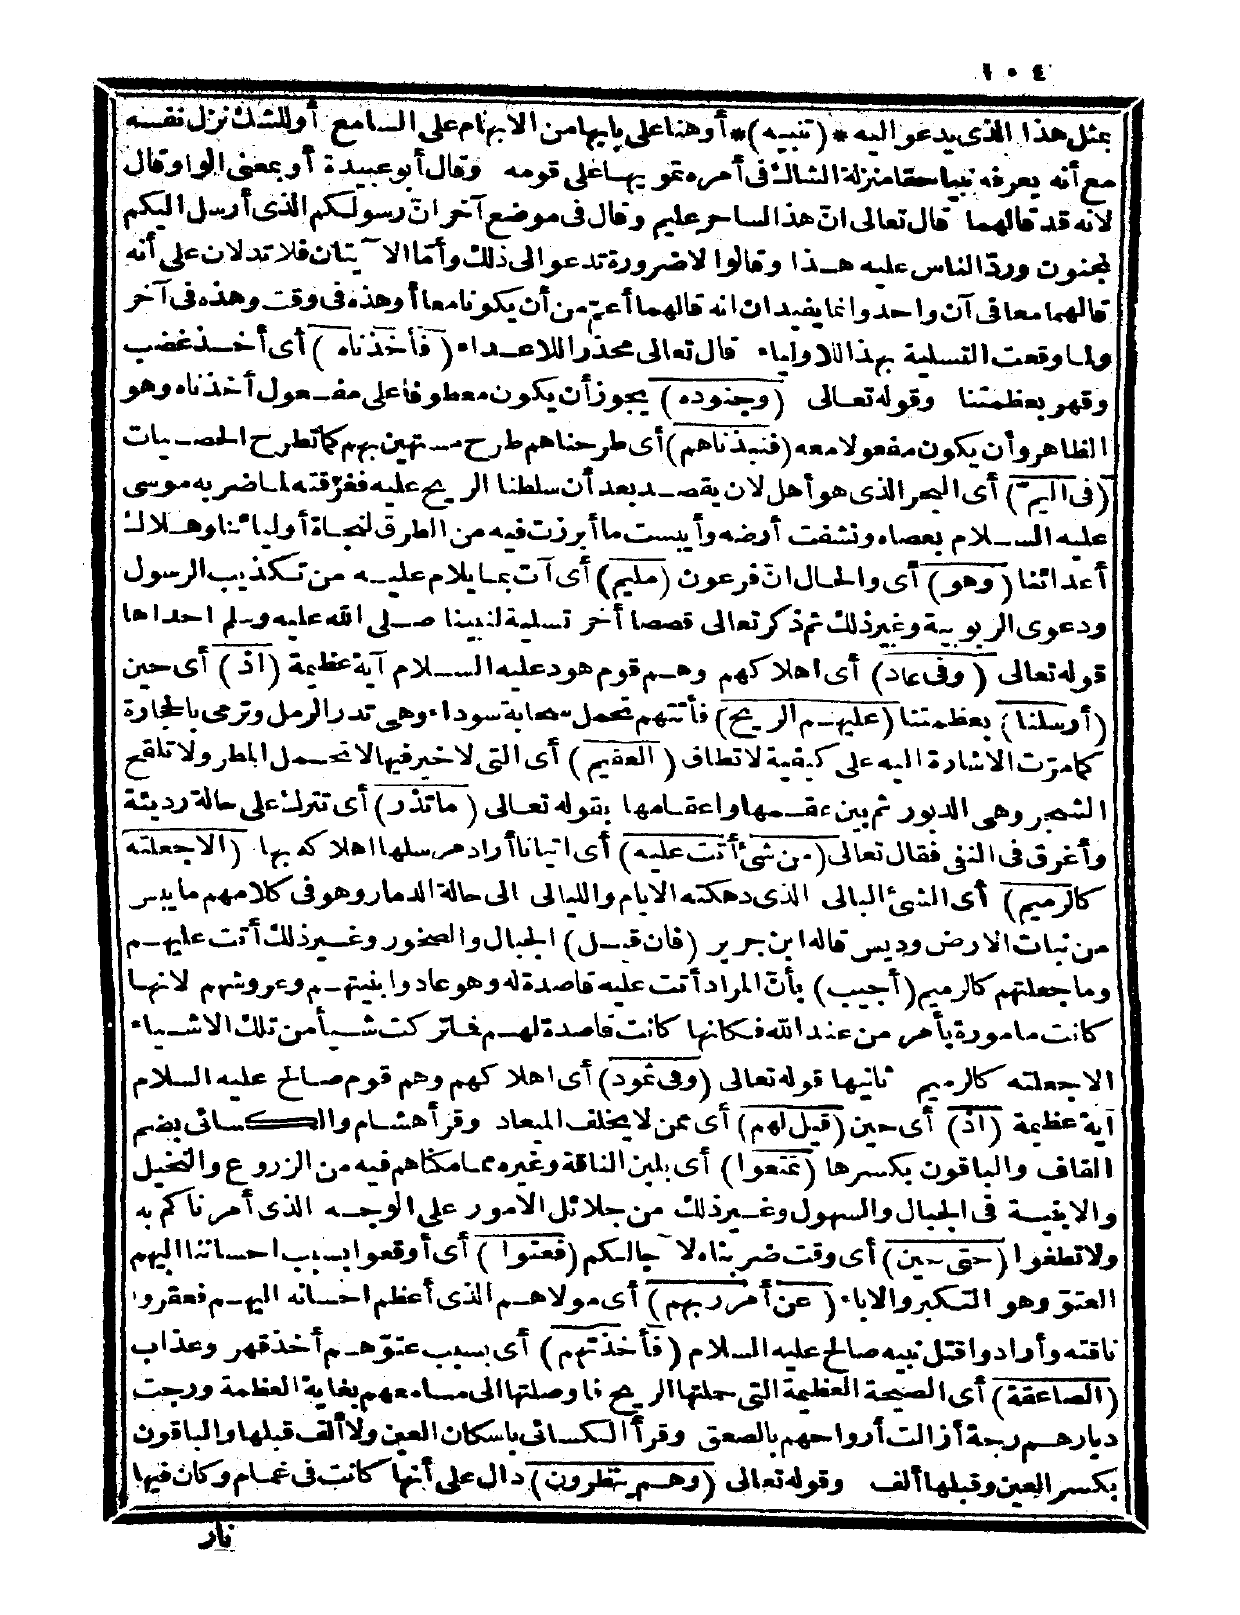 ١٠٤
بمثل هذا الذى يدعو اليه * (تنبيه) * أو هنا على بابها من الابهام على السامع أو للشك نزل نفسه
مع أنه يعرفه نبيا حقا منزلة الشاك فى أمره تمويها على قومه وقال أبو عبيدة أو بمعنى الواو قال
لانه قد قالهما قال تعالى انّ هذا لساحر عليم وقال فى موضع آخر انّ رسولكم الذى أرسل اليكم
لمجنون وردّ الناس عليه هذا وقالوا لا ضرورة تدعو الى ذلك وأمّا الآيتان فلا تدلان على أنه
قالهما معا فى آن واحد وانما يفيدان انه قالهما أعمّ من أن يكونا معا أو هذه فى وقت وهذه فى آخر
ولما وقعت التسلية بهذا للاولياء قال تعالى محذرا للاعداء (فأخذناه) أى أخذ غضب
وقهر بعظمتنا وقوله تعالى (وجنوده) يجوز أن يكون معطوفا على مفعول أخذناه وهو
الظاهر وأن يكون مفعولا معه (فنبذناهم) أى طرحناهم طرح مستهين بهم كما تطرح الحصيات
(فى اليمّ) أى البحر الذى هو أهل لان يقصد بعد أن سلطنا الريح عليه ففرّقته لما ضربه موسى
عليه السلام بعصاه ونشفت أرضه وأيبست ما أبرزت فيه من الطرق لنجاة أوليائنا وهلاك
أعدائنا (وهو) أى والحال انّ فرعون (مليم) أى آت بما يلام عليه من تكذيب الرسول
ودعوى الربوبية وغير ذلك ثم ذكر تعالى قصصا أخر تسلية لنبينا صلى الله عليه وسلم احداها
قوله تعالى (وفى عاد) أى اهلاكهم وهم قوم هود عليه السلام آية عظيمة (اذ) أى حين
(أرسلنا) بعظمتنا (عليهم الريح) فأتتهم تحمل سحابة سوداء وهى تدر الرمل وترمى بالحجارة
كما مرّت الاشارة اليه على كيفية لا تطاف (العقيم) أى التى لا خير فيها لا تحمل المطر ولا تلقح
الشجر وهى الدبور ثم بين عقمها واعقامها بقوله تعالى (ما تذر) أى تترك على حالة رديئة
وأغرق فى النفى فقال تعالى (من شئ أتت عليه) أى اتيانا أراد مرسلها اهلاكه بها (الا جعلته
كالرميم) أى الشئ البالى الذى دهكته الايام والليالى الى حالة الدمار وهو فى كلامهم ما يبس
من نبات الارض وديس قاله ابن جرير (فان قيل) الجبال والصخور وغير ذلك أتت عليهم
وما جعلتهم كالرميم (أجيب) بأنّ المراد أتت عليه قاصدة له وهو عاد وابنيتهم وعروشهم لانها
كانت مامورة بأمر من عند الله فكانها كانت قاصدة لهم فما تركت شيأ من تلك الاشياء
الا جعلته كالرميم ثانيها قوله تعالى (وفى ثمود) أى اهلاكهم وهم قوم صالح عليه السلام
آية عظيمة (اذ) أى حين (قيل لهم) أى ممن لا يخلف الميعاد وقرأ هشام والكسائى بضم
القاف والباقون بكسرها (تمتعوا) أى بلبن الناقة وغيره مما مكناهم فيه من الزروع والنخيل
والابنية فى الجبال والسهول وغير ذلك من جلائل الامور على الوجه الذى أمرناكم به
ولا تطغوا (حتى حين) أى وقت ضربناه لآجالكم (فعتوا) أى أوقعوا بسبب احساننا اليهم
العتوّ وهو التكبر والاباء (عن أمر ربهم) أى مولاهم الذى أعظم احسانه اليهم فعقروا
ناقته وأرادوا قتل نبيه صالح عليه السلام (فأخذتهم) أى بسبب عتوّهم أخذ قهر وعذاب
(الصاعقة) أى الصيحة العظيمة التى حملتها الريح فاوصلتها الى مسامعهم بغاية العظمة ورجت
ديارهم رجة أزالت أرواحهم بالصعق وقرأ الكسائى باسكان العين ولا ألف قبلها والباقون
بكسر العين وقبلها ألف وقوله تعالى (وهم ينظرون) دال على أنها كانت فى غمام وكان فيها
نار